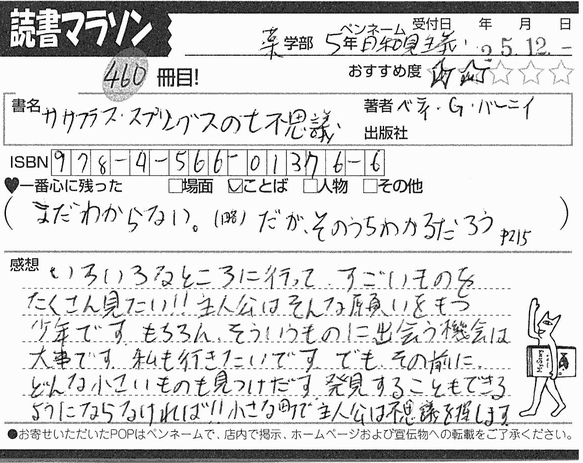 読書マラソン
460 冊目!
薬学部 ペンネーム 5年 受付日 25.12.- 年 月 日
おすすめ度 ☆☆☆☆☆
書名 ササフラス・スプリングスの七不思議
著者 ベティ・G・バーニイ
出版社
ISBN 978-4-566-01376-6
♥一番心に残った □場面 ☑ことば □人物 □その他
(まだわからない。(略)だが、そのうちわかるだろう P215)
感想 いろいろなところに行って、すごいものを
たくさん見たい!!主人公はそんな願いをもつ
少年です。もちろん、そういうものに出会う機会は
大事です。私も行きたいです。でも、その前に、
どんな小さいものも見つけだす、発見することもできる
ようにならなければ!!小さな町で主人公は不思議を探します
●お寄せいただいたPOPはペンネームで、店内で掲示、ホームページおよび宣伝物への転載をご了承ください。